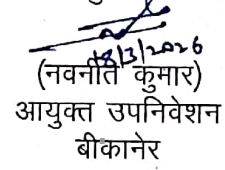 18/3/2026
(नवनीत कुमार)
आयुक्त उपनिवेशन
बीकानेर